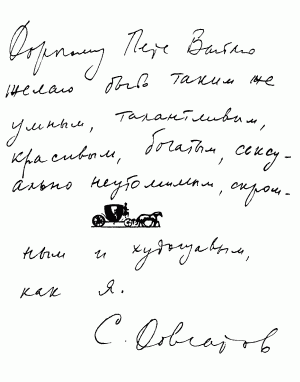 Дорогому Пете Вайлю
желаю быть таким же
умным, талантливым,
красивым, богатым, сексу-
ально неутомимым, скром-
ным и худощавым,
как я.
С. Довлатов